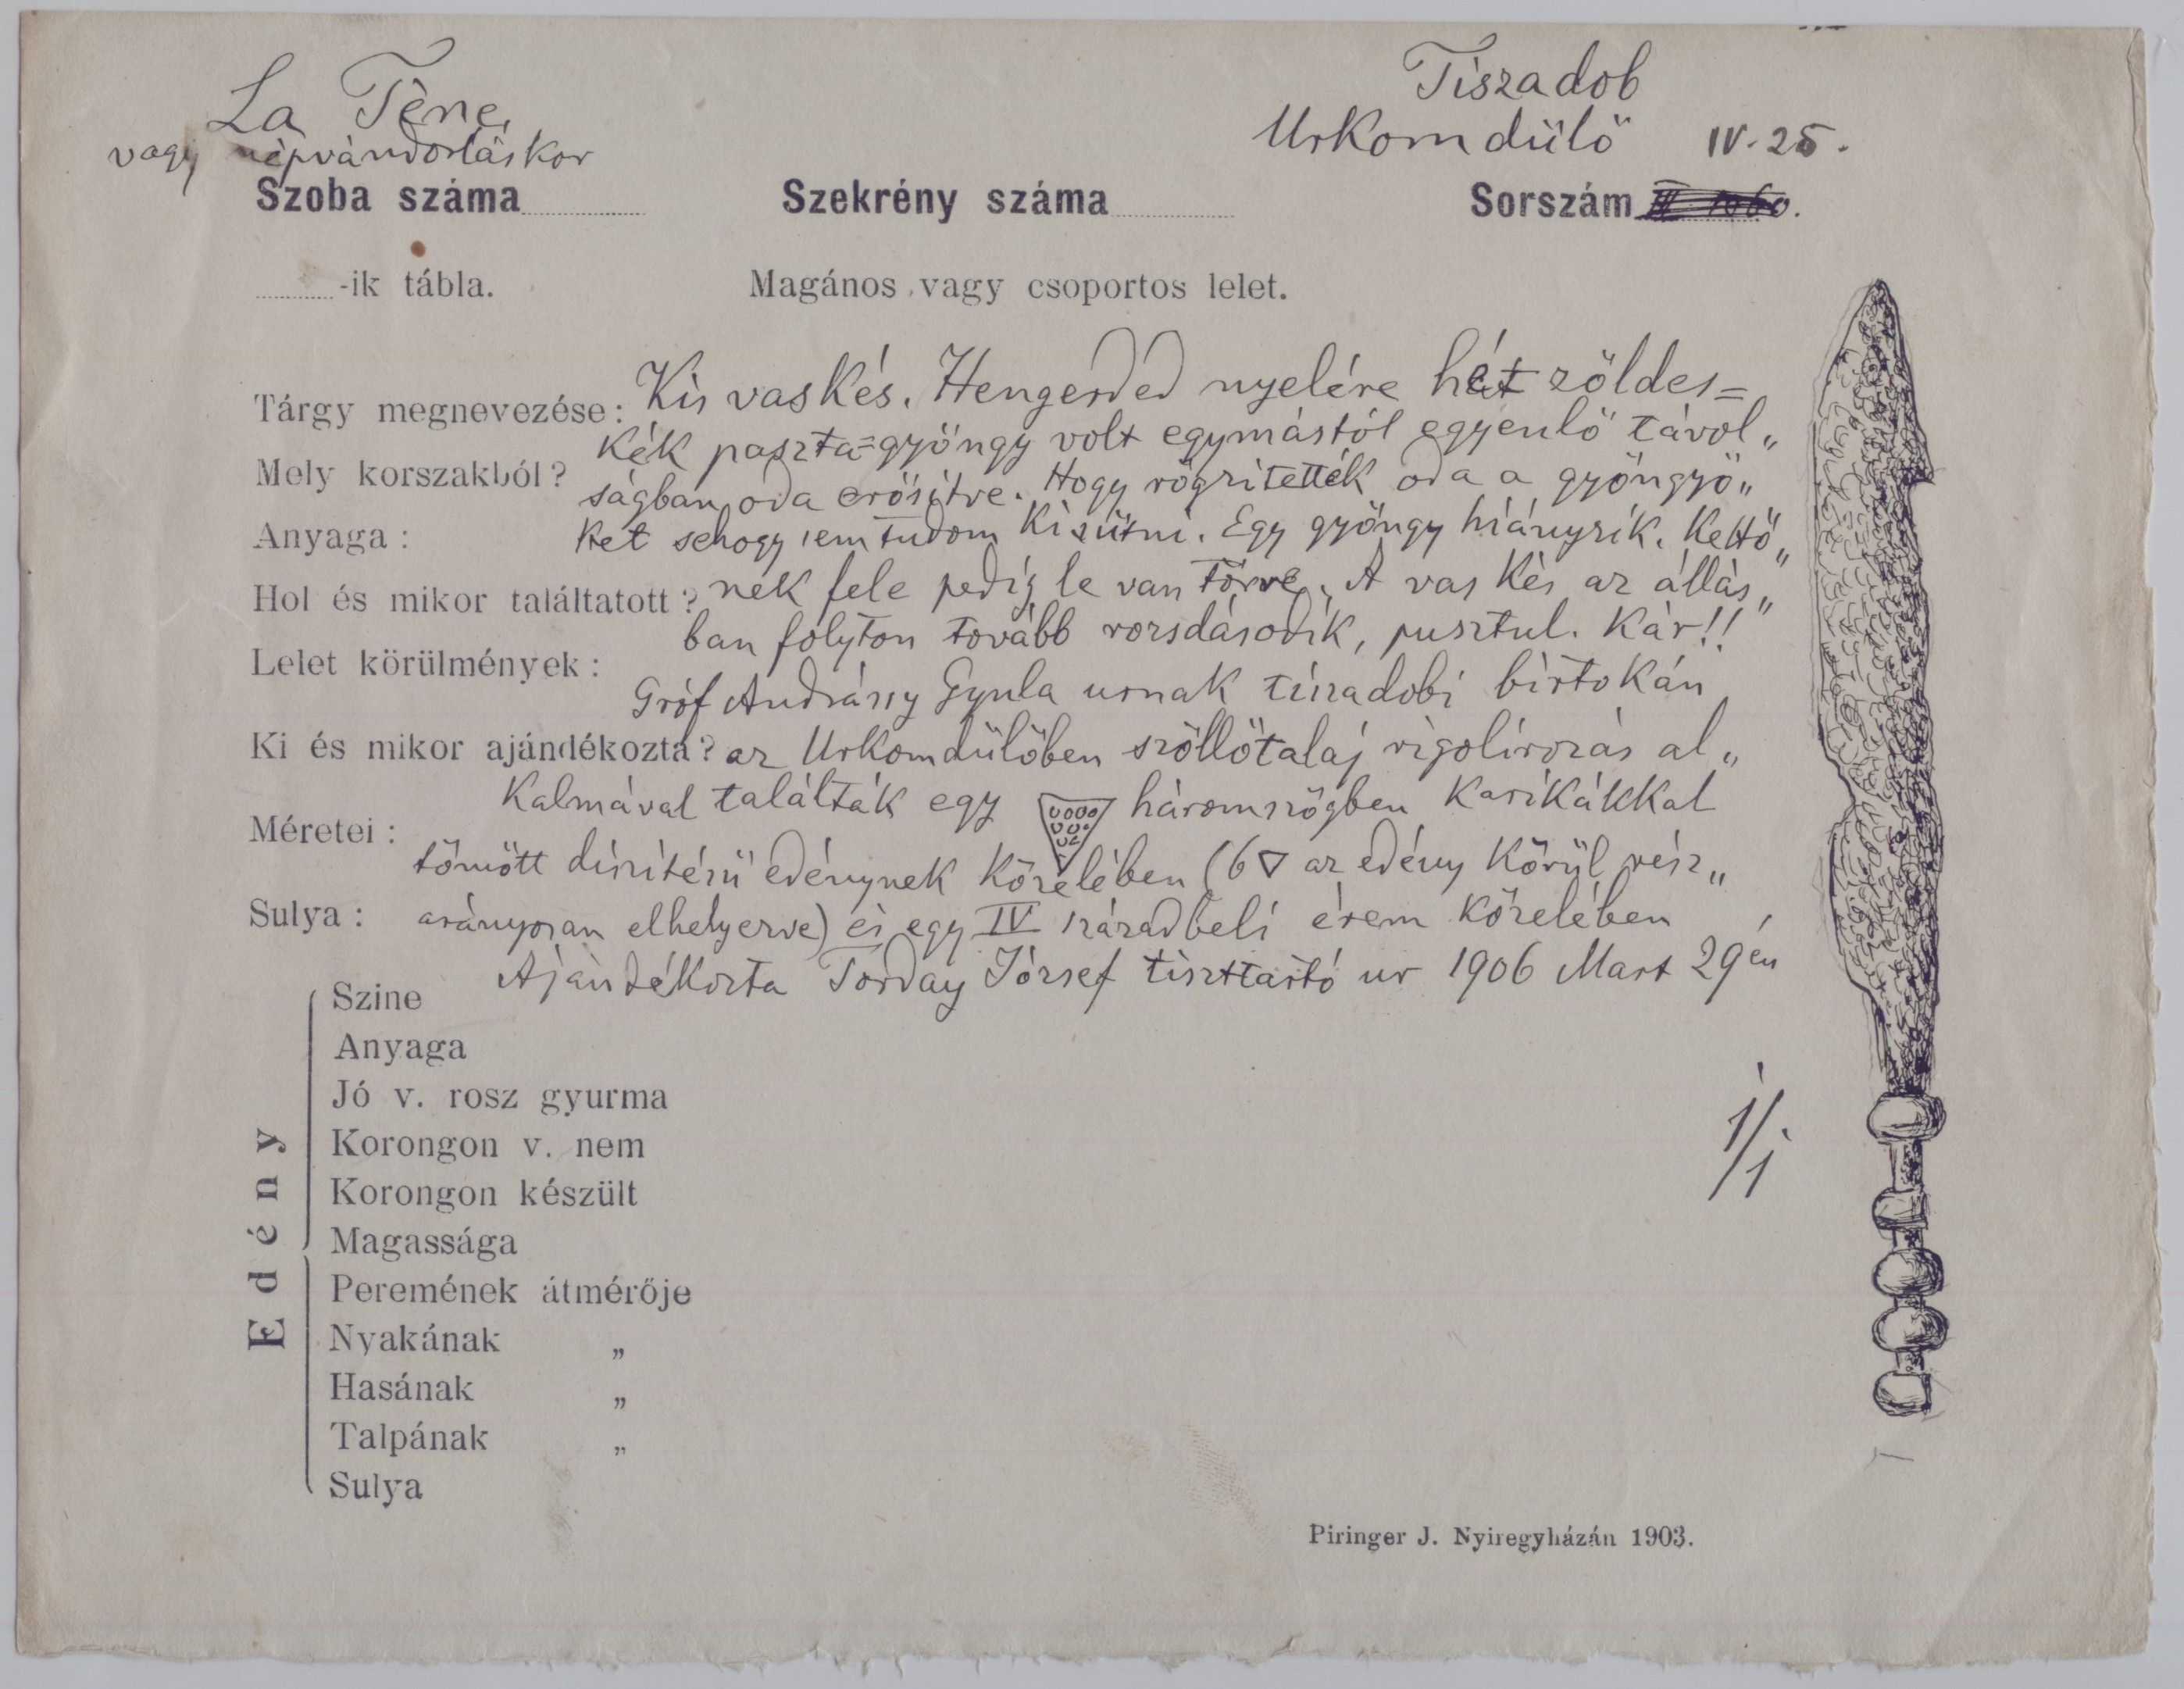 La Tène
vagy népvándorláskor
Tiszadob
Urkom dülő IV. 25.
Szoba száma
Szekrény száma
Sorszám
-ik tábla.
Magános vagy csoportos lelet.
Tárgy megnevezése: Kis vas kés. Hengerded nyelére hét zöldes=
kék paszta=gyöngy volt egymástól egyenlő távol„
Mely korszakból?
ságban oda erősítve. Hogy rögzitették oda a gyöngyö„
Anyaga:
ket sehogy sem tudom kisütni. Egy gyöngy hiányzik. Kettő„
Hol és mikor találtatott? nek fele pedig le van törve. A vas kés az állás„
ban folyton tovább rozsdásodik, pusztul. Kár!!
Lelet körülmények:
Gróf Andrássy Gyula urnak tiszadobi birtokán
Ki és mikor ajándékozta? az Urkomdülőben szőllőtalaj rigolirozás al„
kalmával találták egy háromszögben karikákkal
Méretei:
tömött diszitésü edénynek közelében (6 ▽ az edény körül rész„
Sulya: arányosan elhelyezve) és egy IV századbeli érem közelében
Ajándékozta Torday József tiszttartó ur 1906 Mart 29én
Edény
Szine
Anyaga
Jó v. rosz gyurma
Korongon v. nem
Korongon készült
Magassága
Peremének átmérője
Nyakának „
Hasának „
Talpának „
Sulya
1/1
Piringer J. Nyiregyházán 1903.